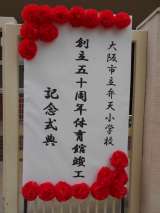 大阪市立弁天小学校
創立五十周年体育館竣工
記念式典